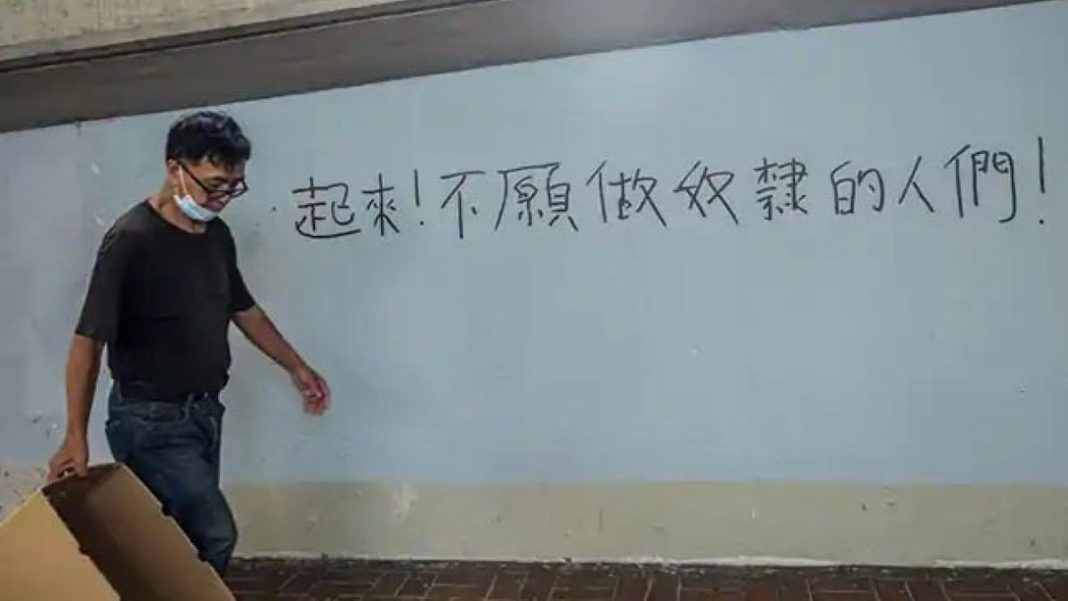 起來！不願做奴隸的人們！